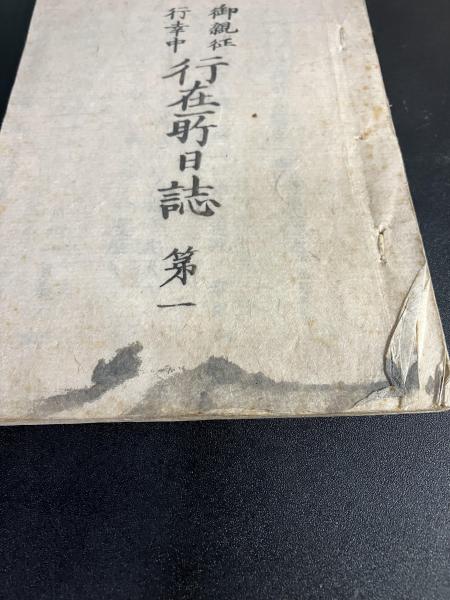 御親征
行幸中
行在所日誌 第一